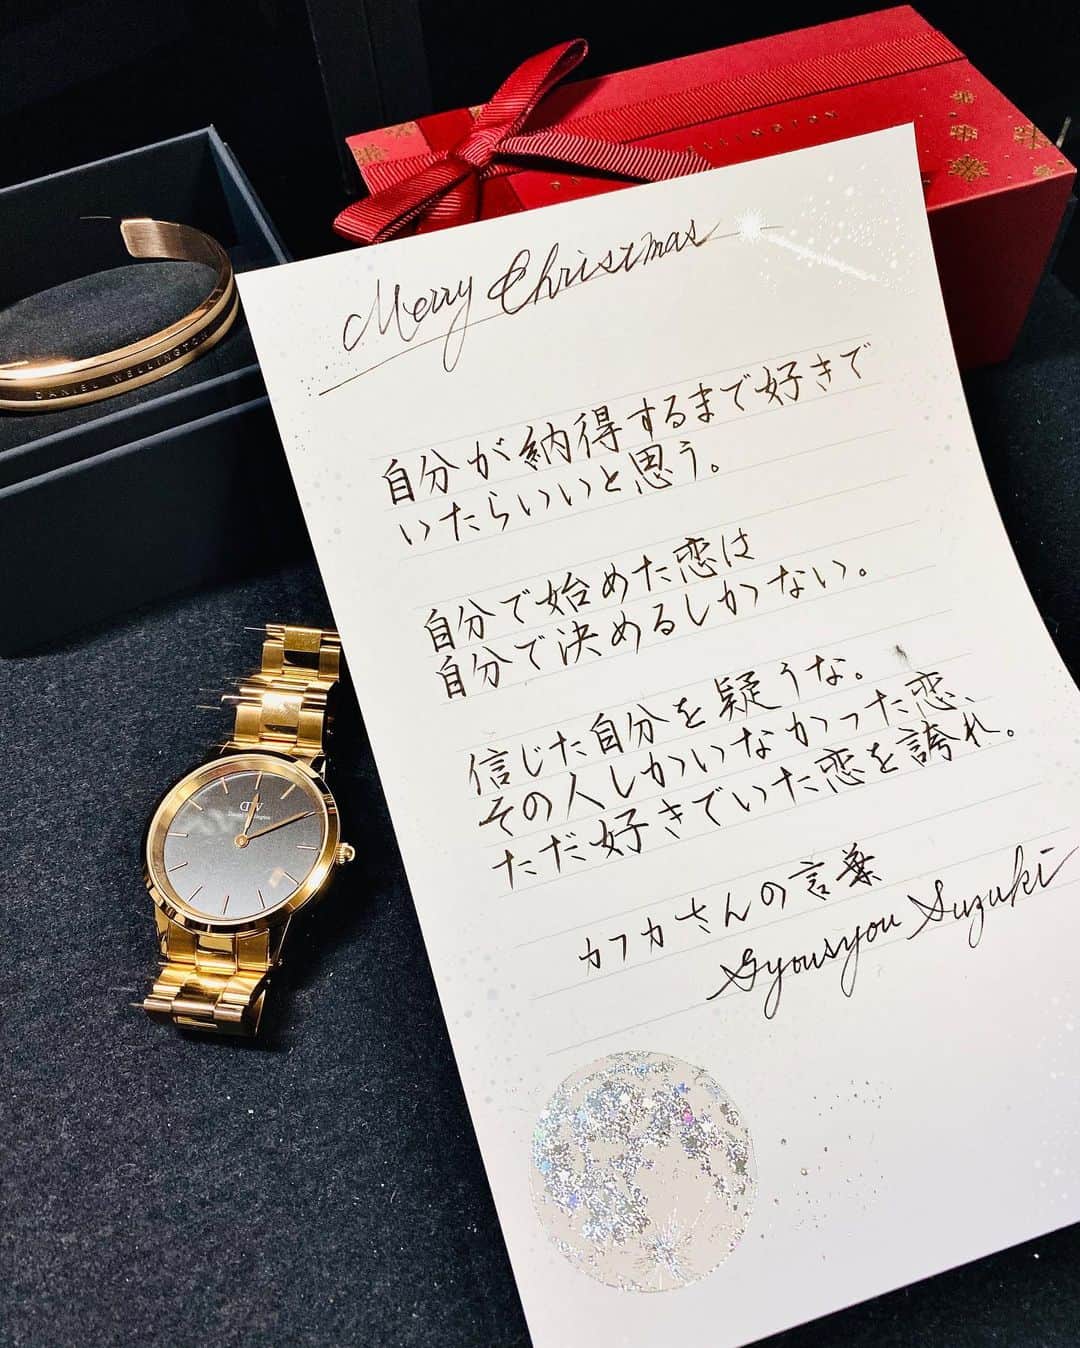 Merry Christmas
自分が納得するまで好きで
いたらいいと思う。
自分で始めた恋は
自分で決めるしかない。
信じた自分を疑うな。
その人しかいなかった恋、
ただ好きでいた恋を誇れ。
カフカさんの言葉
Syousyou Suzuki
DANIEL WELLINGTON
DW
Daniel Wellington